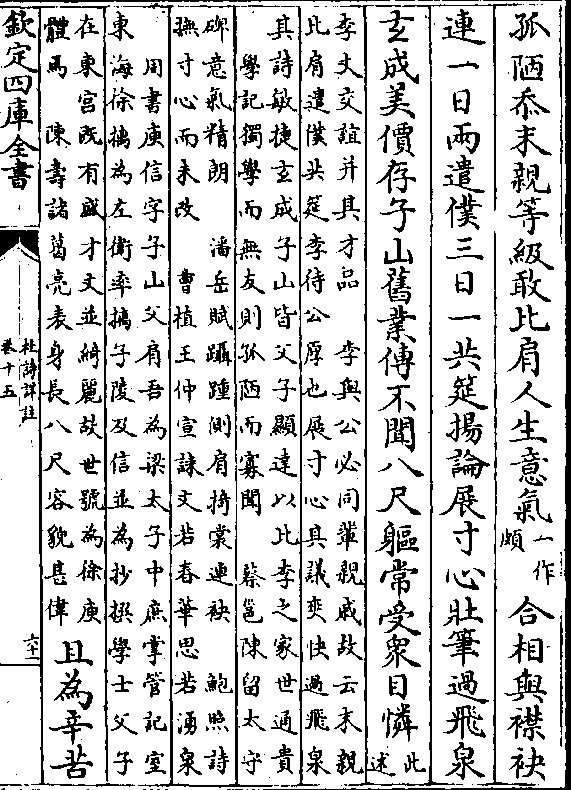 孤陋忝末親等級敢比肩人生意氣一作頗合相與襟袂
連一日兩遣僕三日一共筵揚論展寸心壯筆過飛泉
玄成美價存子山舊業傳不聞八尺軀常受衆目憐此述
李丈交誼并具才品　李與公必同輩親戚故云末親
比肩遣僕共筵李待公厚也展寸心其議爽快過飛泉
其詩敏捷玄成子山皆父子顯達以比李之家世通貴
學記獨學而無友則孤陋而寡聞　蔡邕陳留太守
碑意氣精朗　潘岳賦躡踵側肩掎裳連袂　鮑照詩
撫寸心而未改　曹植王仲宣誄文若春華思若湧泉
周書庾信字子山父肩吾為梁太子中庶掌管記室
東海徐摛為左衛率摛子陵及信並為抄撰學士父子
在東宮既有盛才文並綺麗故世號為徐庾
體焉　陳壽諸葛亮表身長八尺容貌甚偉
且為辛苦
欽定四庫全書
杜詩詳註
卷十五